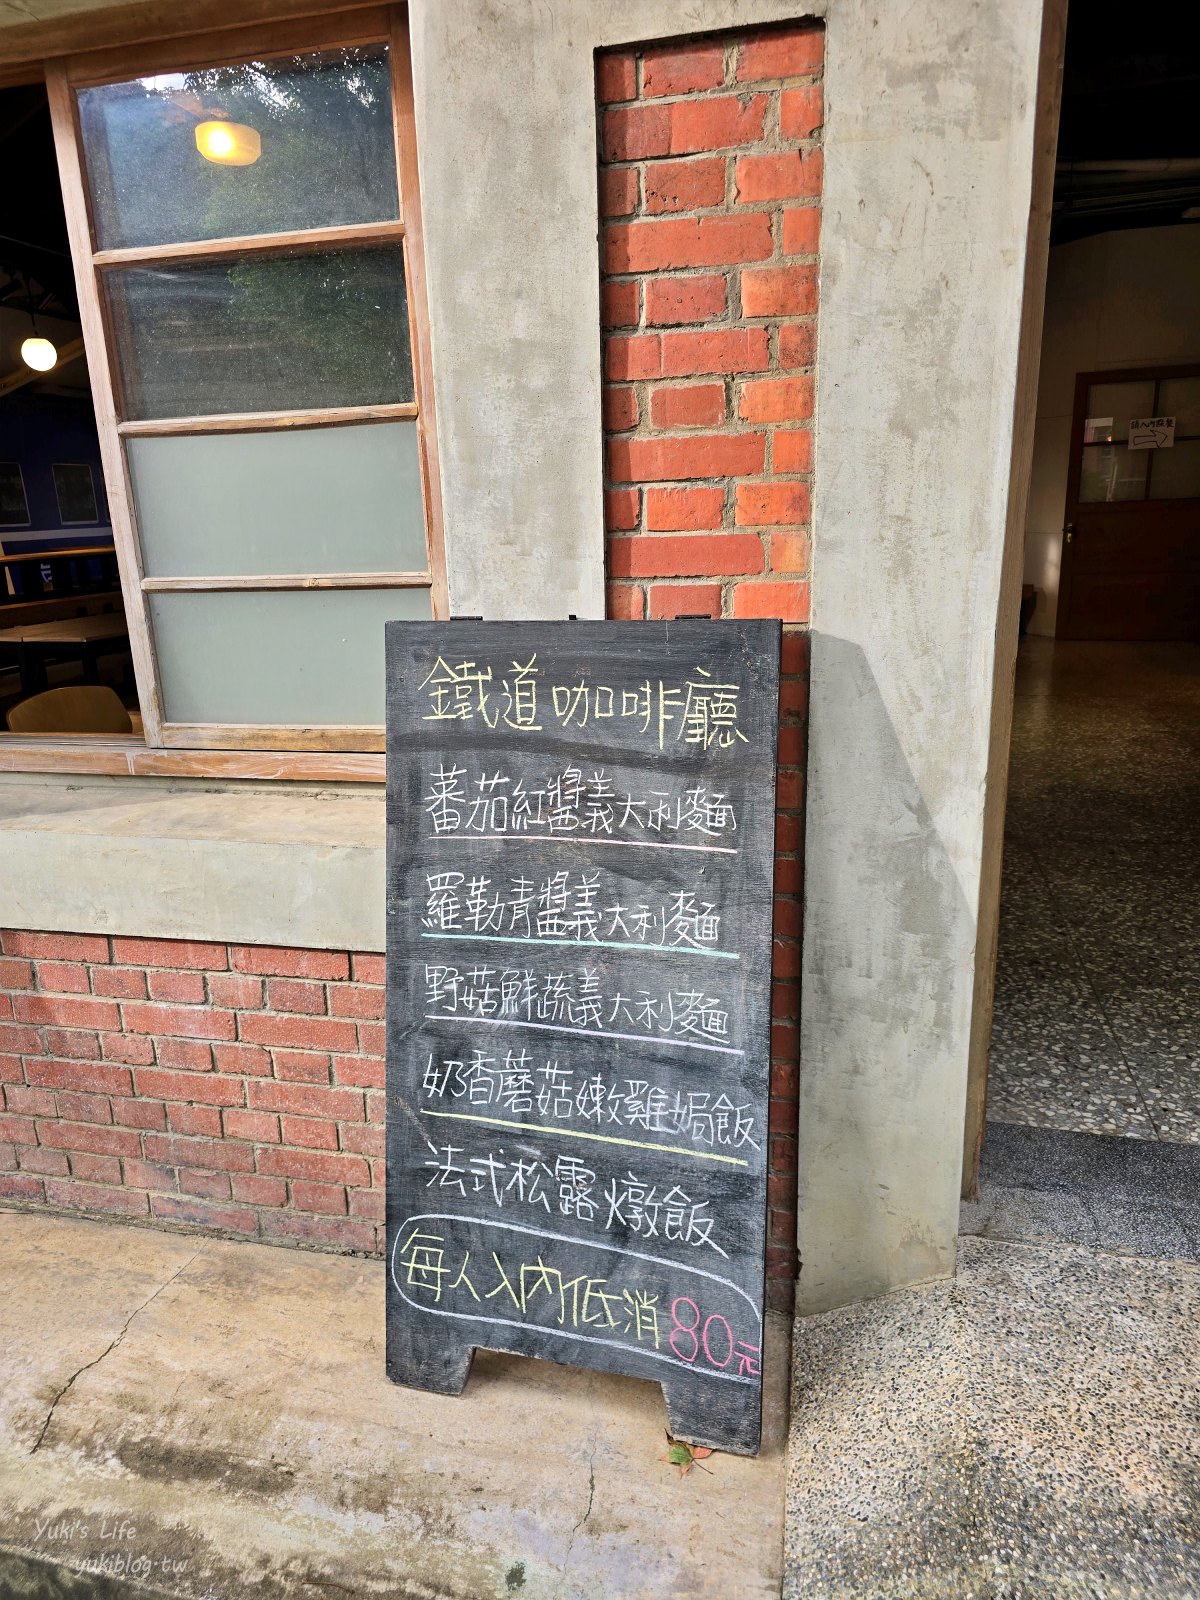 請入內點餐
鐵道咖啡廳
蕃茄紅醬義大利麵
羅勒青醬義大利麵
野菇鮮蔬義大利麵
奶香蘑菇嫩雞焗飯
法式松露燉飯
每人入內低消80元
Yuki's Life
yukiblog.tw